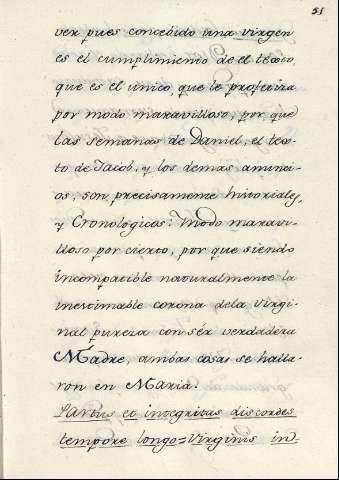 51
ver pues concebido una virgen
es el cumplimiento de el texto,
que es el unico, que le profetiza
por modo maravilloso, por que
las semanas de Daniel, el tex-
to de Jacob, y los demas anunci-
os, son precisamente historiales,
y Cronologicos: Modo maravi-
lloso por cierto, por que siendo
incompatible naturalmente la
inestimable corona dela Virgi-
nal pureza con sér verdadera
Madre, ambas cosas se halla-
ron en Maria.
Partus et integritas discordes
tempore longo = Virginis in-